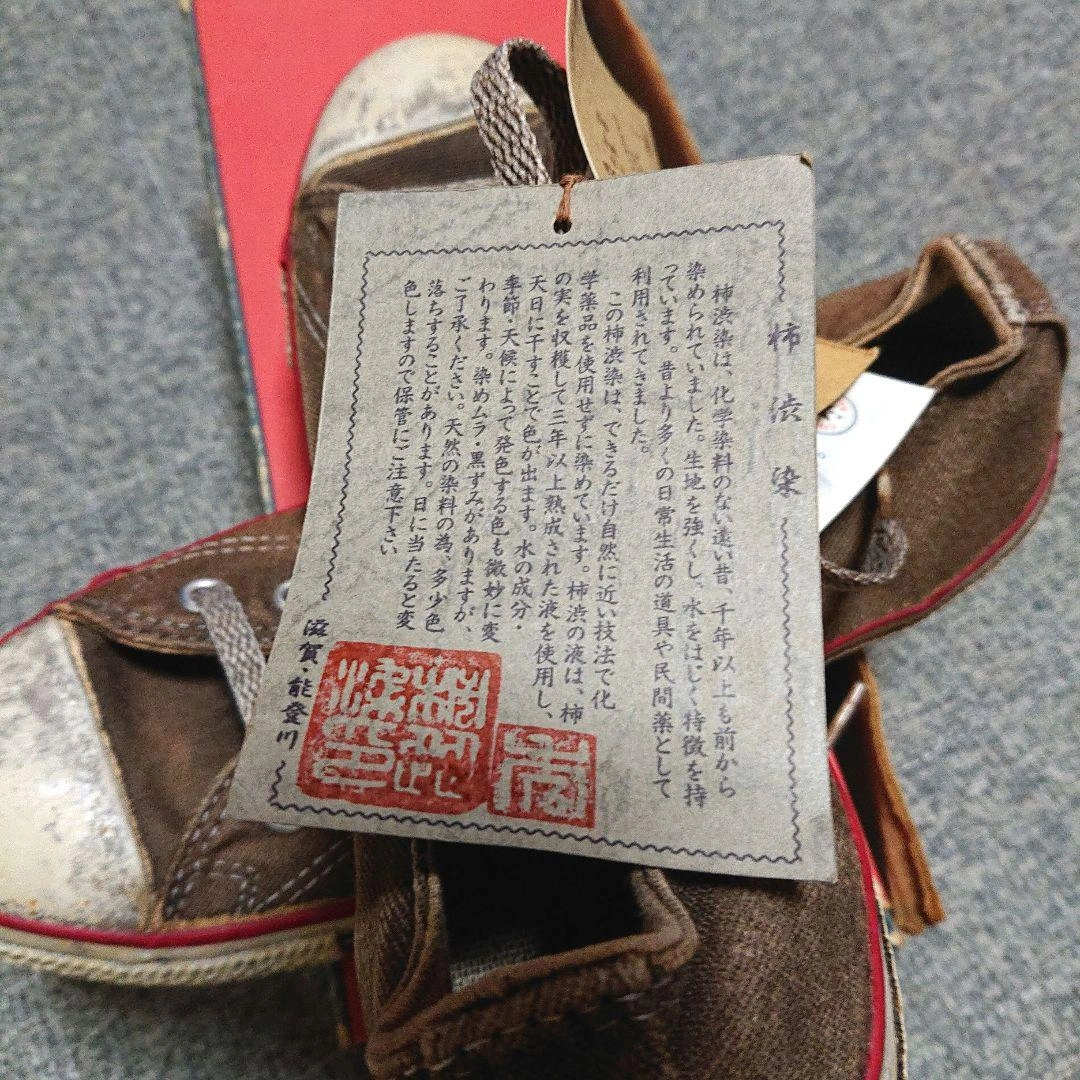 柿渋染
柿渋染は、化学染料のない遠い昔、千年以上も前から
染められていました。生地を強くし、水をはじく特徴を持
っています。昔より多くの日常生活の道具や民間薬として
利用されてきました。
この柿渋染は、できるだけ自然に近い技法で化
学薬品を使用せずに染めています。柿渋の液は、柿
の実を収穫して三年以上熟成された液を使用し、
天日に干すことで色が出ます。水の成分・
季節・天候によって発色する色も微妙に変
わります。染めムラ・黒ずみがありますが、
ご了承ください。天然の染料の為、多少色
落ちすることがあります。日に当たると変
色しますので保管にご注意下さい
滋賀・能登川